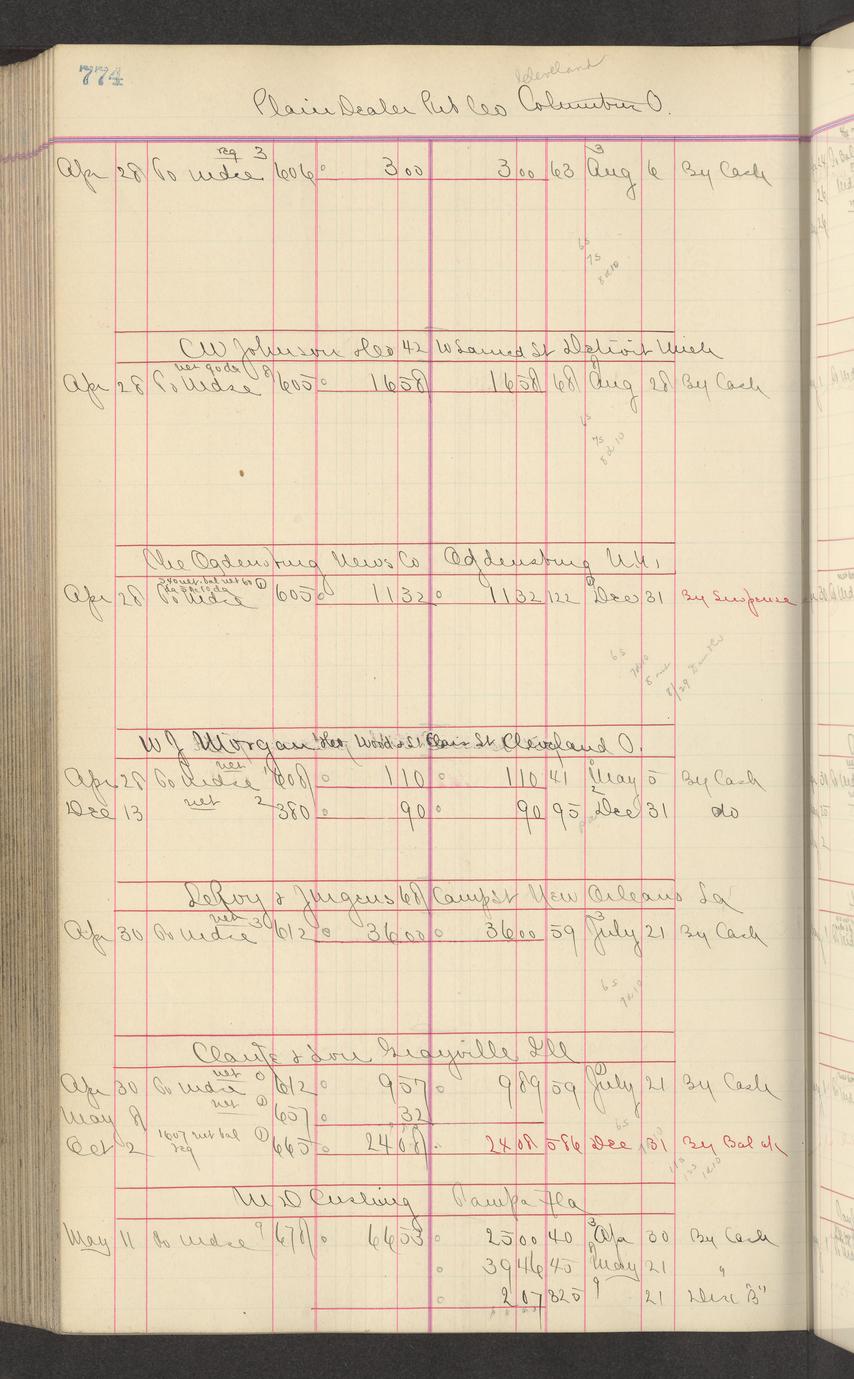 774
Cleveland
Plain Dealer Pub Co Columbus O.
reg 3
Apr 28 To Mdse 606 3 00 3 00 63 3 Aug 6 By Cash
6s
7s
8d10
CW Johnson & Co 42 W Larned St Detroit Mich
net 90 ds 8
Apr 28 To Mdse 605 16 58 16 58 68 8 Aug 28 By Cash
7s
8d10
The Ogdensburg News Co Ogdensburg N.Y.
540 net. bal net 60 1
Apr 28 To Mdse 605 11 32 11 32 122 Dec 31 By Suspense
6s
7d10
8/29
W J Morgan & Co Wood & St Clair St Cleveland O.
net 1
Apr 28 To Mdse 608 1 10 1 10 41 May 5 By Cash
Dec 13 net 2 380 90 90 95 2 Dec 31 do
LeRoy & Jurgens 68 Camp St New Orleans La
net 3
Apr 30 To Mdse 612 36 00 36 00 59 3 July 21 By Cash
6s
7d10
& Son Grayville Ill
net 0
Apr 30 To Mdse 612 9 57 9 89 59 July 21 By Cash
May 8 net 1 657 32
6s
Oct 2 1607 net bal 1 665 24 08 24 08 586 Dec 31 By Bal
reg
M D Cushing Tampa Fla
May 11 To Mdse 9 678 66 53 25 00 40 3 Apr 30 By Cash
39 46 45 May 21 "
2 07 325 9 21 Disc "B"